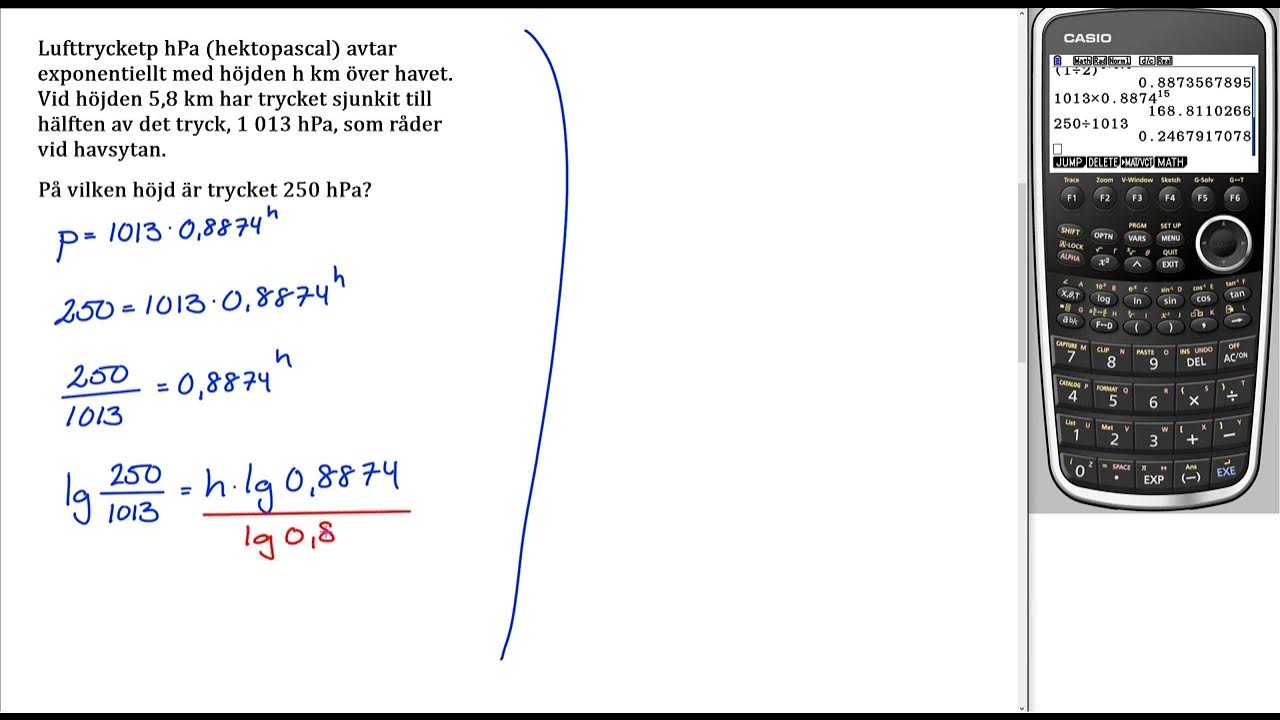 Lufttrycketp hPa (hektopascal) avtar
exponentiellt med höjden h km över havet.
Vid höjden 5,8 km har trycket sjunkit till
hälften av det tryck, 1 013 hPa, som råder
vid havsytan.
På vilken höjd är trycket 250 hPa?
p = 1013 · 0,8874^h
250 = 1013 · 0,8874^h
250/1013 = 0,8874^h
lg 250/1013 = h · lg 0,8874
lg 0,8
CASIO
Math Rad Norm1 d/c Real
(1÷2)
0.8873567895
1013×0.8874^15
168.8110266
250÷1013
0.2467917078
JUMP DELETE ▶MAT/VCT MATH
Trace Zoom V-Window Sketch G-Solv G↔T
F1 F2 F3 F4 F5 F6
PRGM SET UP
SHIFT OPTN VARS MENU
A-LOCK QUIT
ALPHA x² ^ EXIT
X,θ,T log ln sin cos tan
a b/c F↔D ( ) , →
CAPTURE M CLIP N PASTE O INS UNDO OFF
7 8 9 DEL AC/ON
CATALOG P FORMAT Q R { S } T
4 5 6 × ÷
List U Mat V W [ X ] Y
1 2 3 + −
i Z = SPACE π " Ans ↵
0 . EXP (−) EXE